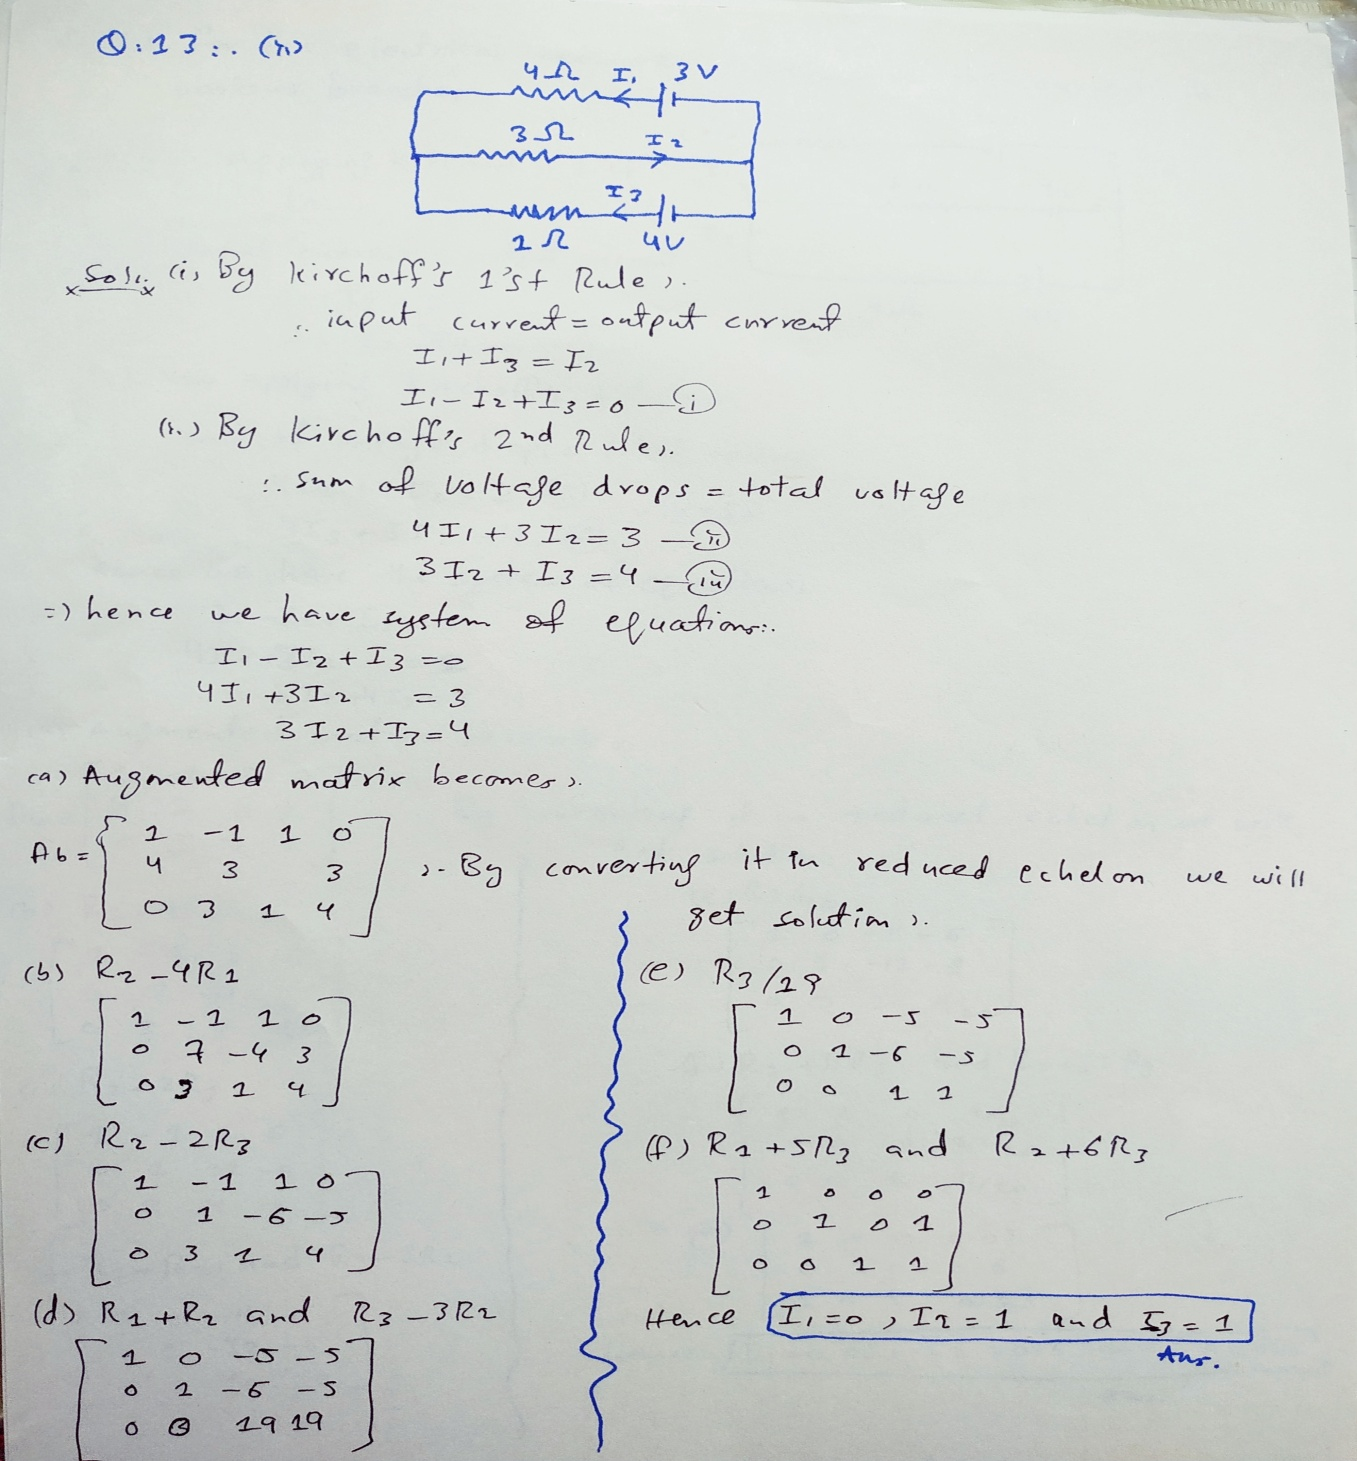 Q:13:. (ii)
4Ω I₁ 3V
3Ω I₂
I₃
1Ω 4V
Sol: (i) By Kirchoff's 1'st Rule:.
∴ input current = output current
I₁ + I₃ = I₂
I₁ - I₂ + I₃ = 0 — (i)
(ii) By Kirchoff's 2nd Rule:.
∴ sum of voltage drops = total voltage
4I₁ + 3I₂ = 3 — (ii)
3I₂ + I₃ = 4 — (iii)
=> hence we have system of equations:.
I₁ - I₂ + I₃ = 0
4I₁ + 3I₂ = 3
3I₂ + I₃ = 4
(a) Augmented matrix becomes:.
Ab = [ 1 -1 1 0
4 3 3
0 3 1 4 ]
:- By converting it in reduced echelon we will
get solution:.
(b) R₂ - 4R₁
1 -1 1 0
0 7 -4 3
0 3 1 4
(c) R₂ - 2R₃
1 -1 1 0
0 1 -6 -5
0 3 1 4
(d) R₁ + R₂ and R₃ - 3R₂
1 0 -5 -5
0 1 -6 -5
0 0 19 19
(e) R₃/19
1 0 -5 -5
0 1 -6 -5
0 0 1 1
(f) R₁ + 5R₃ and R₂ + 6R₃
1 0 0 0
0 1 0 1
0 0 1 1
Hence I₁ = 0, I₂ = 1 and I₃ = 1
Ans.